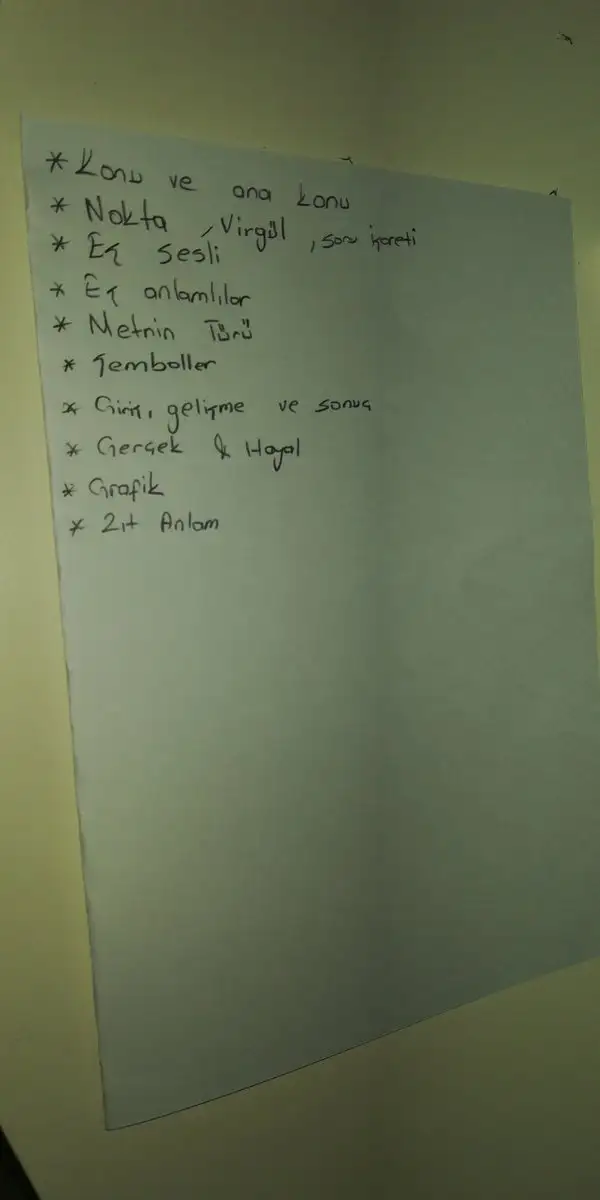 * Konu ve ana konu
* Nokta, Virgül, soru işareti
* Eş sesli
* Eş anlamlılar
* Metnin Türü
* Semboller
* Giriş, gelişme ve sonuç
* Gerçek & Hayal
* Grafik
* Zıt Anlam